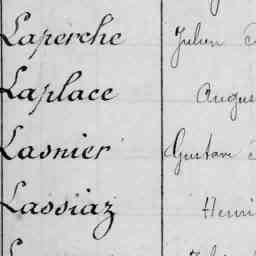 Laperche Julien
Laplace Augus
Lasnier Gustave
Lassiaz Henri